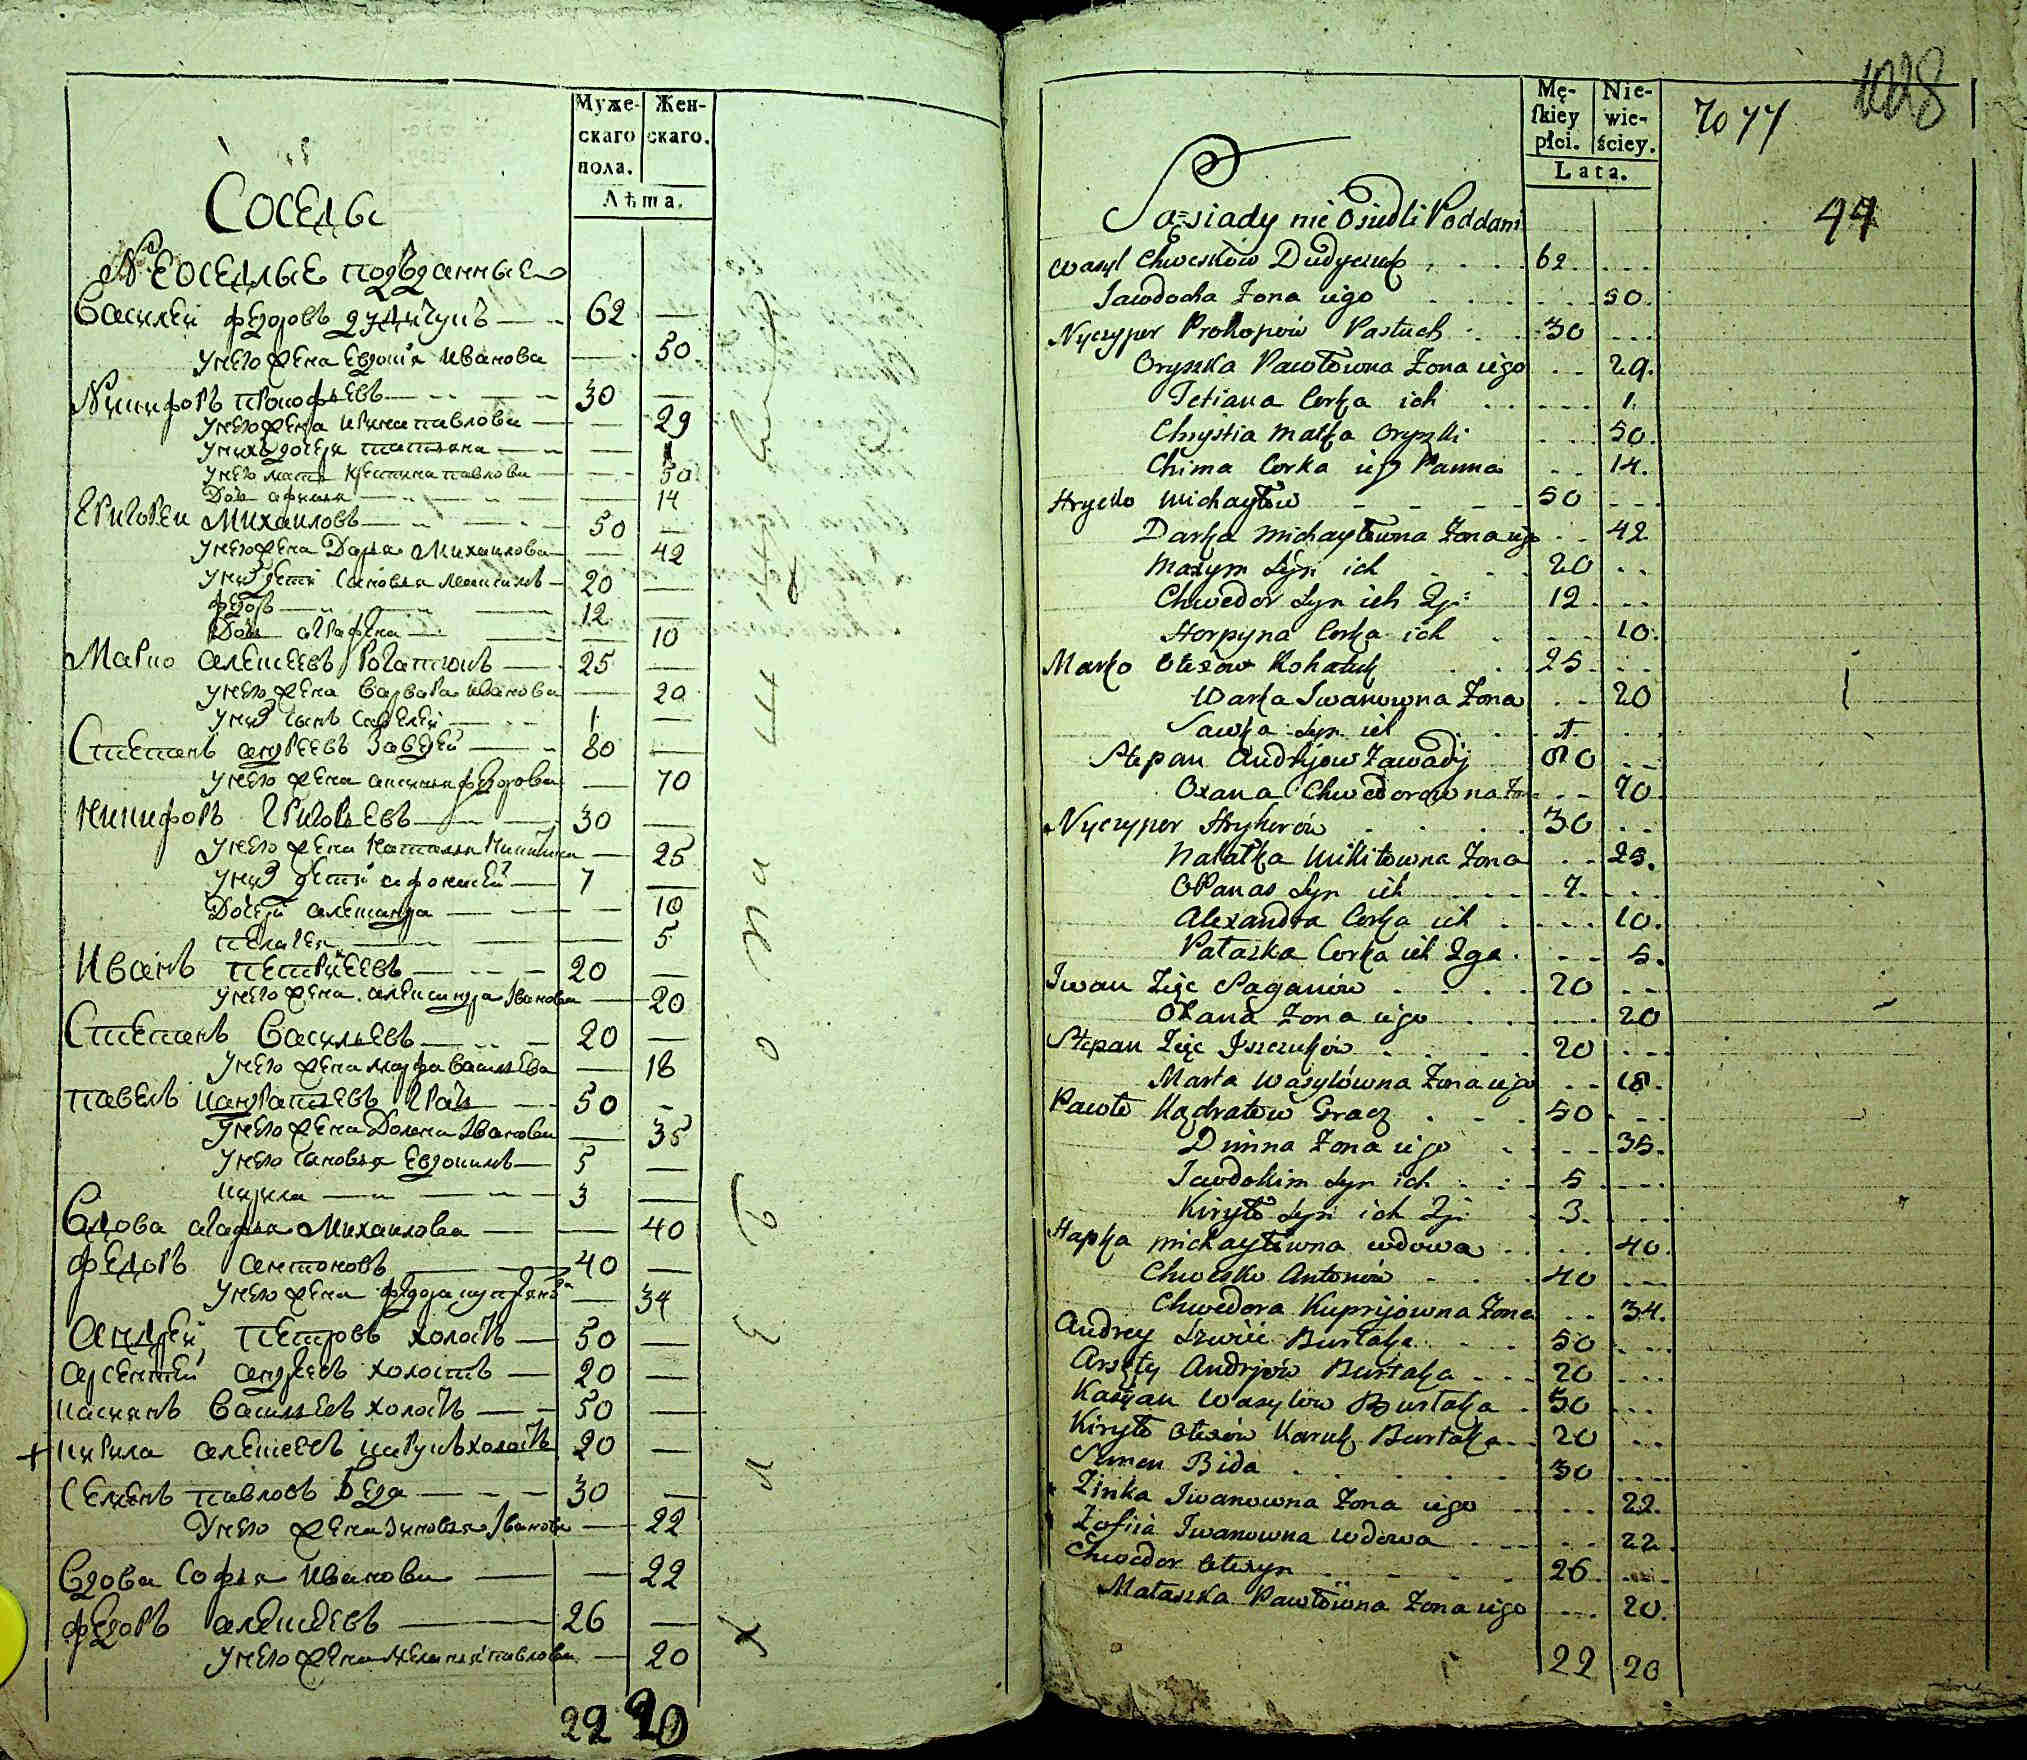 Муже-
скаго
пола.
Жен-
скаго.
Лѣта.
Соседы
Неоседлые подданные
Василеи Федоровъ Дудичукъ 62
У него жена Евдокия Иванова 50
Никифоръ Прокофьевъ 30
У него жена Ирина Павлова 29
У нихъ дочерь Татьяна 1
У него мать Кристина Павлова 50
Дочь Афимья 14
Григореи Михаиловъ 50
У него жена Дарья Михаилова 42
У них дети Сыновья Максимъ 20
Федоръ 12
Дочь Аграфена 10
Марко Алексеевъ Рогатюкъ 25
У него жена Варвара Иванова 20
У них сынъ Савелей 1
Степанъ Андреевъ Завадей 80
У него жена Аксинья Федорова 70
Никифоръ Григорьевъ 30
У него жена Наталья Никитина 25
У них дети Афонасей 7
Дочери Александра 10
Пелагея 5
Иванъ 20
У него жена Александра Иванова 20
Степанъ Васильевъ 20
У него жена Марфа Васильева 18
Павелъ Кандратьевъ Грач 50
У него жена Домна Иванова 35
У него сыновья Евдокимъ 5
Кирила 3
Вдова Агафья Михаилова 40
Федоръ Антоновъ 40
У него жена Федора Куприянова 34
Андрей Петровъ холостъ 50
Арсентей Андреевъ холостъ 20
Касиянъ Васильевъ холостъ 50
+ Кирила Алексеевъ Карукъ холостъ 20
Семенъ Павловъ Беда 30
У него жена Зиновья Иванова 22
Вдова Софья Иванова 22
Федоръ Алексеевъ 26
У него жена Мелания Павлова 20
22 20
Mę-
ſkiey
płci.
Nie-
wie-
ściey.
Lata.
7077
1028
44
Są=siady nie Osiedli Poddani
Wasyl Chwesków Dudyczuk 62
Jawdocha Żona iego 50.
Nyczyper Prokopów Pastuch 30
Oryszka Pawłowna Żona iego 29.
Tetiana Corka ich 1.
Chrystia Matka Oryszki 50.
Chima Corka iey Panna 14.
Hryćko Michayłow 50
Darka Michayłowna Żona iego 42
Maxym Syn ich 20
Chwedor Syn ich 2gi 12
Horpyna Corka ich 10.
Marko Olexow Rohatiuk 25
Warka Iwanowna Żona 20
Sawka Syn ich 1.
Stepan Andryjow Zawadij 80
Oxana Chwedorowna Żona 70.
Nyczyper Hryhorów 30
Natałka Mikitowna Żona 25.
Opanas Syn ich 7.
Alexandra Corka ich 10.
Pałaszka Corka ich 2ga 5.
Iwan Zięć Paganiów 20
Oxana Żona iego 20
Stepan Zięć Iszczuków 20
Marta Wasylówna Żona iego 18.
Pawło Kądratow Gracz 50
Dimna Żona iego 35.
Jawdokim Syn ich 5
Kiryło Syn ich 2gi 3.
Hapka Michayłowna wdowa 40.
Chwesko Antonów 40
Chwedora Kuprijowna Żona 34.
Andrey Burłaka 50
Andrjów Burłaka 20
Kasyan Wasylow Burłaka 50
Kiryło Olexów Karuk Burłaka 20
Semen Bida 30
Zinka Iwanowna Żona iego 22.
Zofiia Iwanowna wdowa 22.
Chwedor Olexyn 26.
Małaszka Pawłowna Żona iego 20.
22 20